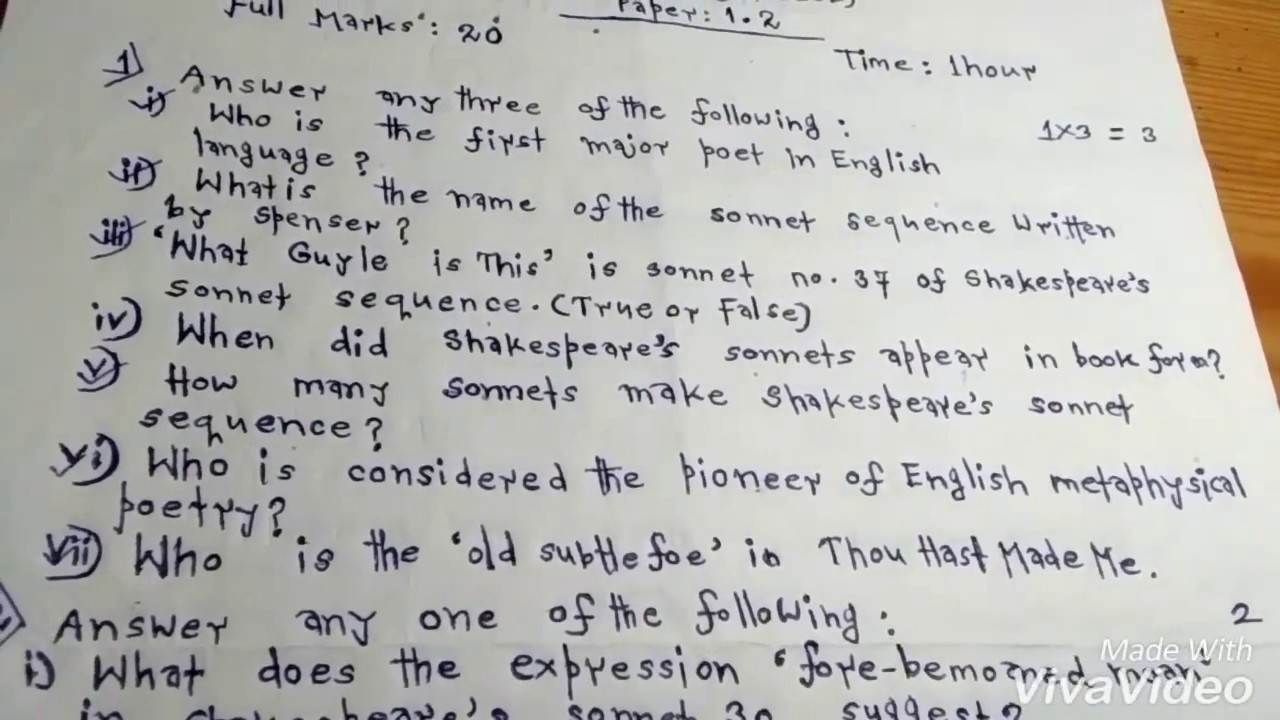 Full Marks: 20
Paper: 1.2
Time: 1hour
1) Answer any three of the following: 1x3 = 3
i) Who is the first major poet in English
language?
ii) What is the name of the sonnet sequence written
by Spenser?
iii) 'What Guyle is This' is sonnet no. 37 of Shakespeare's
sonnet sequence. (True or False)
iv) When did Shakespeare's sonnets appear in book form?
v) How many sonnets make Shakespeare's sonnet
sequence?
vi) Who is considered the pioneer of English metaphysical
poetry?
vii) Who is the 'old subtle foe' in Thou Hast Made Me.
Answer any one of the following: 2
i) What does the expression 'fore-bemoaned moan'
in Shakespeare's sonnet 30 suggest?
Made With
VivaVideo